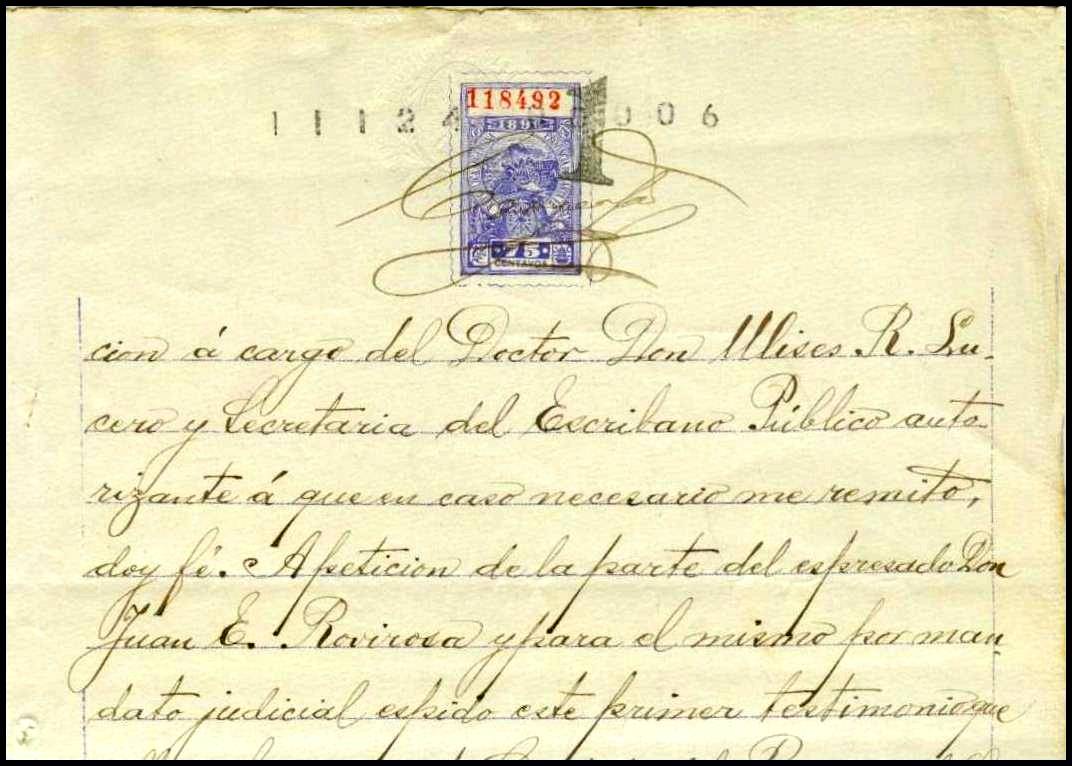 118492
1 1 1 2 4 0 0 6
1
1896
75
CENTAVOS
cion á cargo del Doctor Don Ulises R. Lu-
cero y Secretaria del Escribano Público auto-
rizante á que en caso necesario me remito,
doy fé. A peticion de la parte del espresado Don
Juan E. Rovirosa y para el mismo por man-
dato judicial espido este primer testimonio que